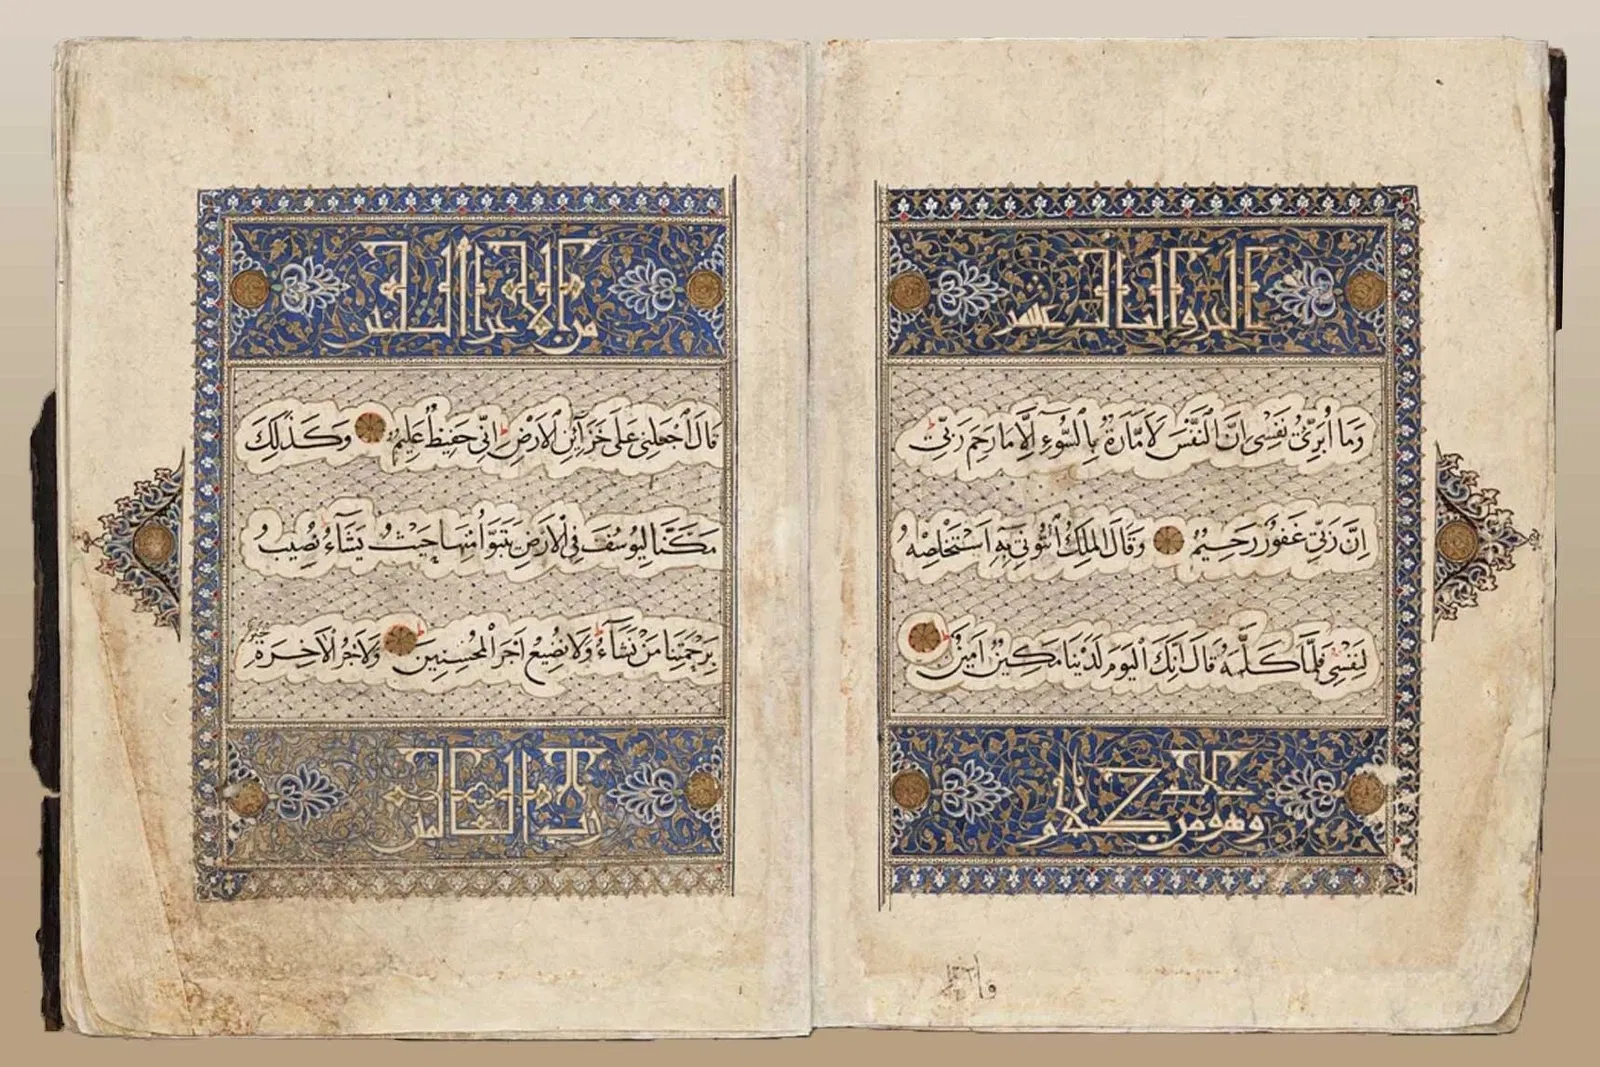 الجزو الثالث عشر
وَمَا أُبَرِّئُ نَفْسِي إِنَّ ٱلنَّفْسَ لَأَمَّارَةٌ بِٱلسُّوٓءِ إِلَّا مَا رَحِمَ رَبِّي
إِنَّ رَبِّي غَفُورٌ رَحِيمٌ وَقَالَ ٱلْمَلِكُ ٱئْتُونِي بِهِ أَسْتَخْلِصْهُ
لِنَفْسِي فَلَمَّا كَلَّمَهُ قَالَ إِنَّكَ ٱلْيَوْمَ لَدَيْنَا مَكِينٌ أَمِينٌ
وهو من كلام
من الاجزا الثلثين
قَالَ ٱجْعَلْنِي عَلَى خَزَآئِنِ ٱلْأَرْضِ إِنِّي حَفِيظٌ عَلِيمٌ وَكَذَلِكَ
مَكَّنَّا لِيُوسُفَ فِي ٱلْأَرْضِ يَتَبَوَّأُ مِنْهَا حَيْثُ يَشَآءُ نُصِيبُ
بِرَحْمَتِنَا مَنْ نَشَآءُ وَلَا نُضِيعُ أَجْرَ ٱلْمُحْسِنِينَ وَلَأَجْرُ ٱلْآخِرَةِ خَيْرٌ
رب العالمين